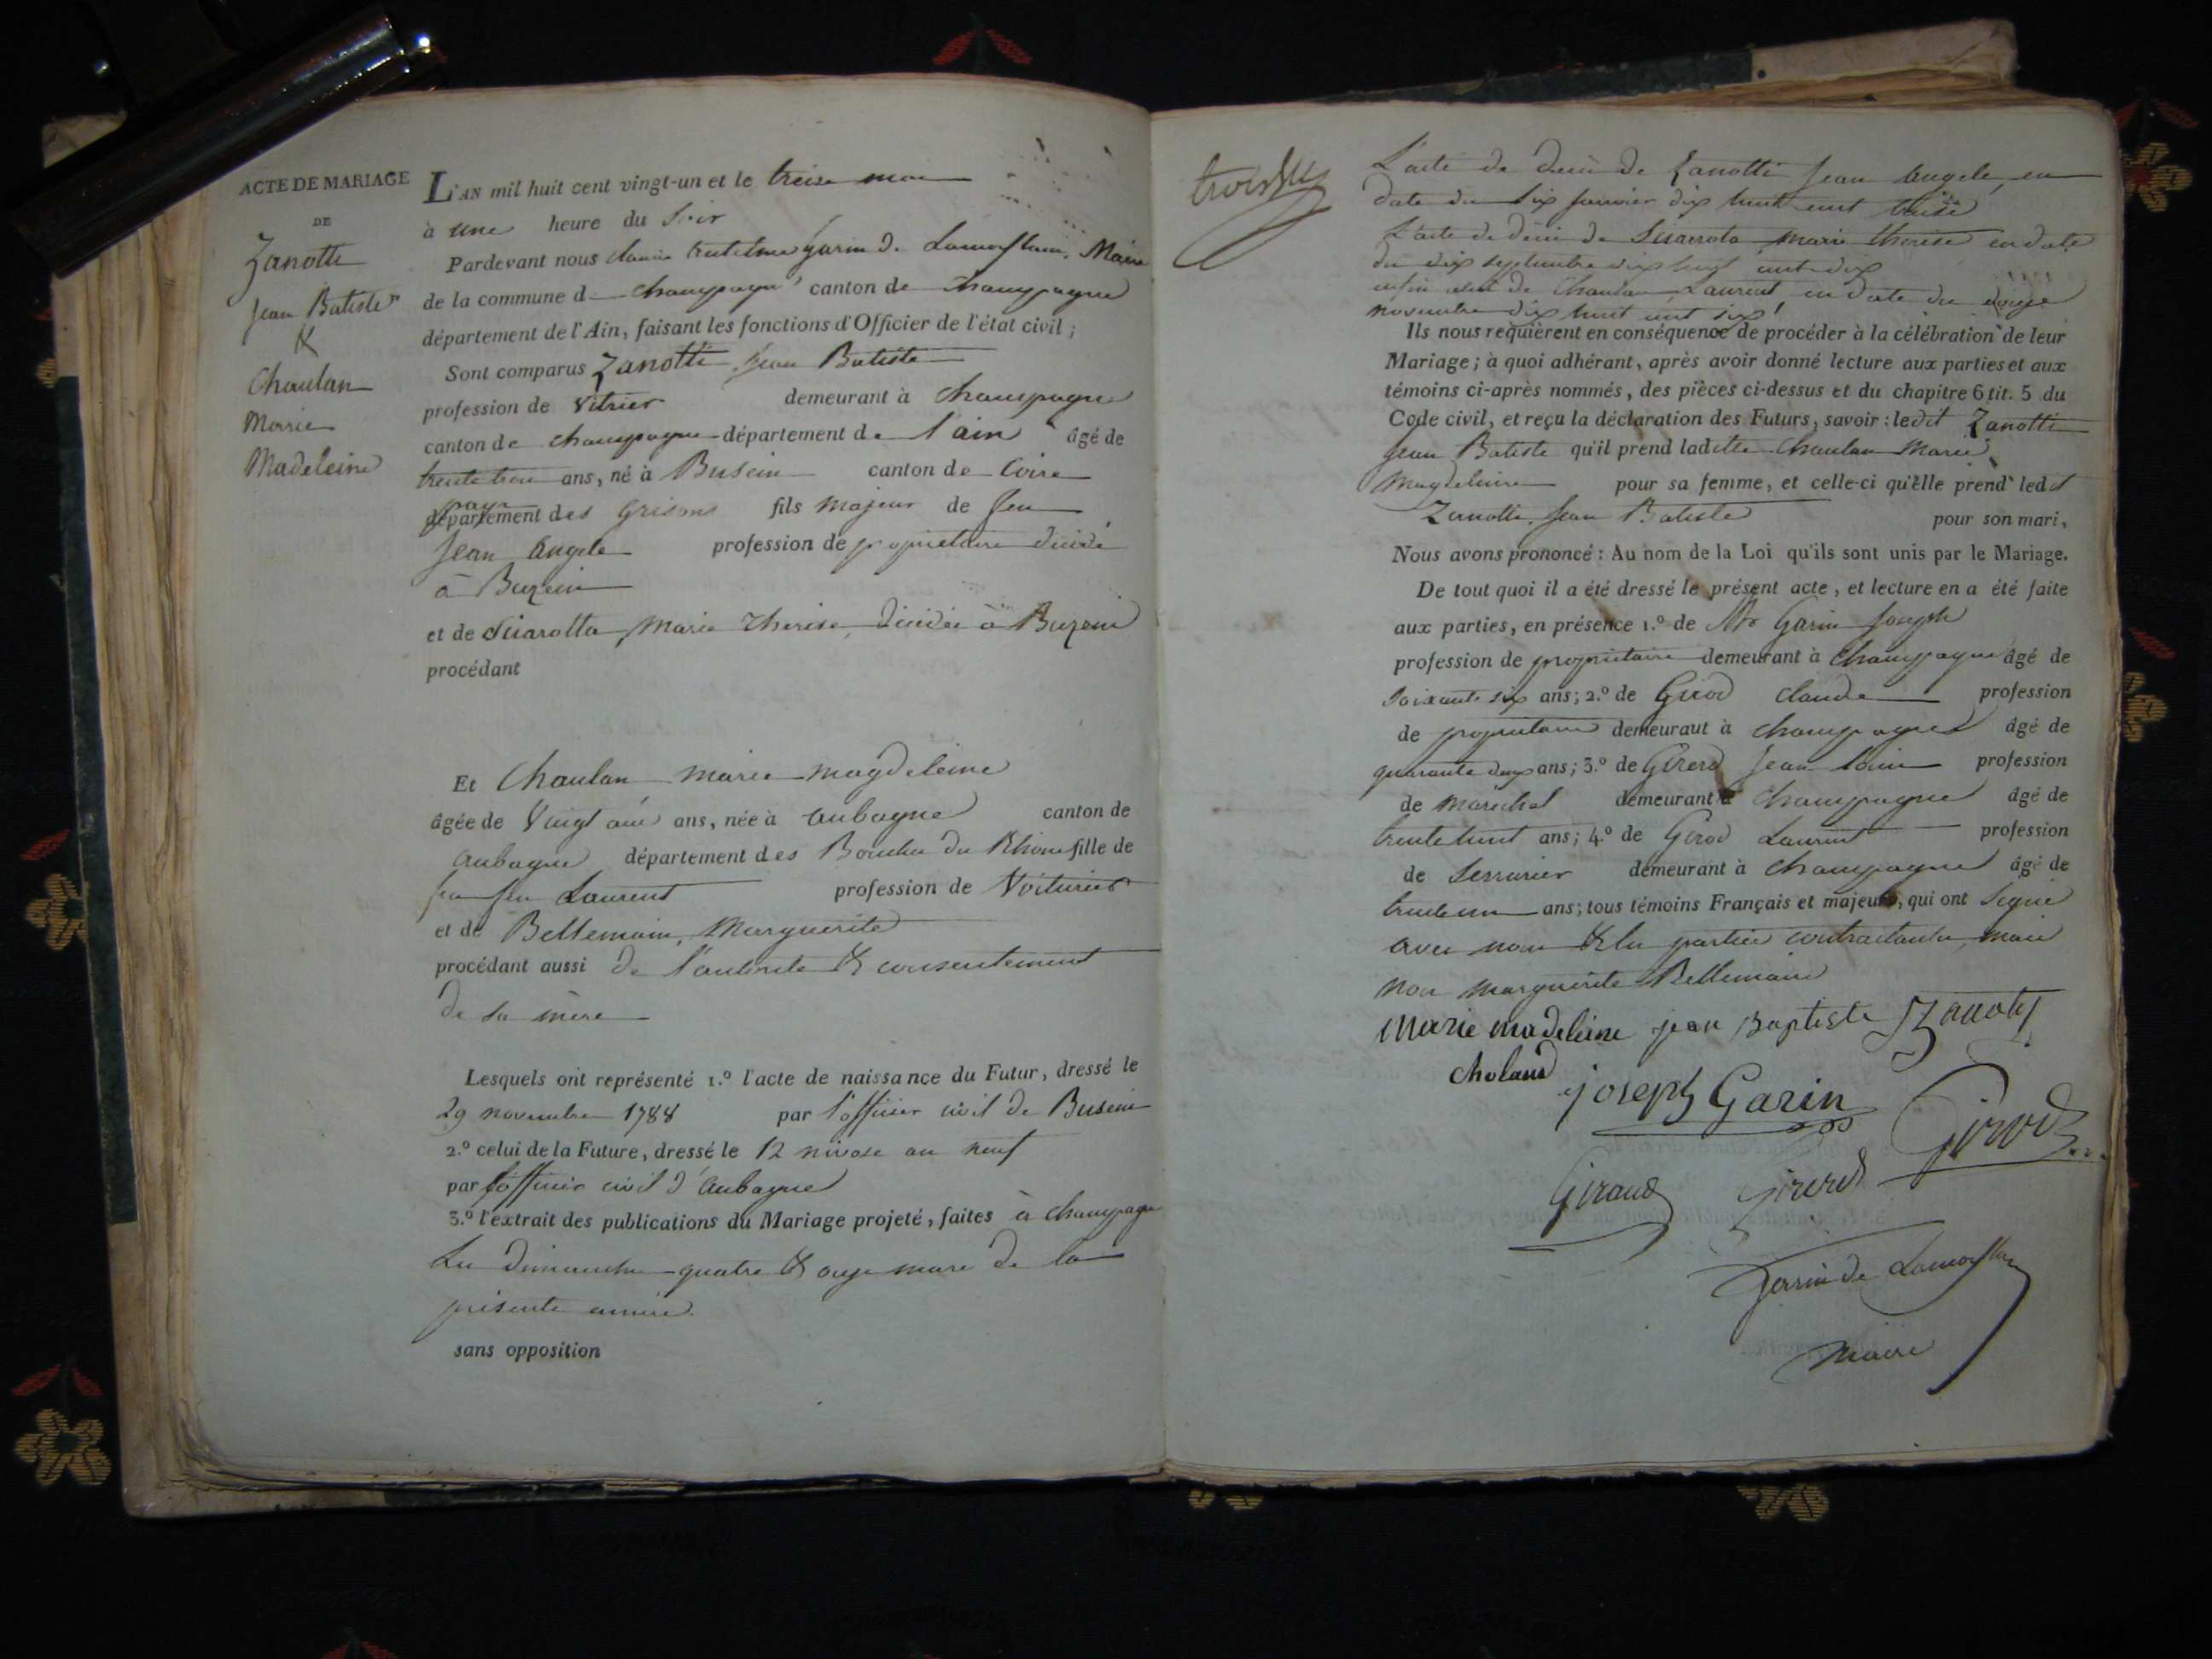 ACTE DE MARIAGE
DE
Zanotti
Jean Batiste
&
Chaulan
Marie
Madeleine
L'AN mil huit cent vingt-un et le treise mars
à une heure du Soir
Pardevant nous Garin de Lamorflan, Maire
de la commune d champagne canton de champagne
département de l'Ain, faisant les fonctions d'Officier de l'état civil ;
Sont comparus Zanotti Jean Batiste
profession de Vitrier demeurant à champagne
canton de champagne département de l'ain âgé de
trente trois ans, né à Busein canton de Coire
pays
département des Grisons fils majeur de feu
Jean Angele profession de propriétaire décédé
à Buzein
et de Sciarotta, Marie Therese, décédée à Buzein
procédant
Et Chaulan marie magdeleine
âgée de Vingt ans, née à aubagne canton de
aubagne département des Bouches du Rhone fille de
feu Laurent profession de Voiturier
et de Bellemain, Marguerite
procédant aussi de l'autorité & consentement
de sa mère
Lesquels ont représenté 1.º l'acte de naissance du Futur, dressé le
29 novembre 1788 par l'officier civil de Busein
2.º celui de la Future, dressé le 12 nivose an neuf
par l'officier civil d'aubagne
3.º l'extrait des publications du Mariage projeté, faites à champagne
les dimanches quatre & onze mars de la
présente année.
sans opposition
L'acte de décès de Zanotti Jean Angele, en
date du six janvier dix huit cent treise
L'acte de décès de Sciarrota marie therese en date
du dix septembre dix huit cent dix
enfin celui de Chaulan Laurent, en date du douze
novembre dix huit cent six
Ils nous requièrent en conséquence de procéder à la célébration de leur
Mariage ; à quoi adhérant, après avoir donné lecture aux parties et aux
témoins ci-après nommés, des pièces ci-dessus et du chapitre 6 tit. 5 du
Code civil, et reçu la déclaration des Futurs, savoir : ledit Zanotti
Jean Batiste qu'il prend ladite Chaulan Marie
Magdeleine pour sa femme, et celle-ci qu'elle prend ledit
Zanotti Jean Batiste pour son mari,
Nous avons prononcé : Au nom de la Loi qu'ils sont unis par le Mariage.
De tout quoi il a été dressé le présent acte, et lecture en a été faite
aux parties, en présence 1.º de Mr Garin Joseph
profession de propriétaire demeurant à champagne âgé de
soixante six ans ; 2.º de Girod claude profession
de propriétaire demeuraut à champagne âgé de
quarante deux ans ; 3.º de Girerd Jean profession
de maréchal demeurant à champagne âgé de
trente huit ans ; 4.º de Girod Laurent profession
de Serrurier demeurant à champagne âgé de
trente un ans ; tous témoins Français et majeurs, qui ont signé
avec nous & les parties contractantes, mais
non marguerite Bellemain
Marie madeleine jean Baptiste Zanoty
choland
joseph Garin
Girod
Giraud Girerd
Garin de Lamorflan
Maire